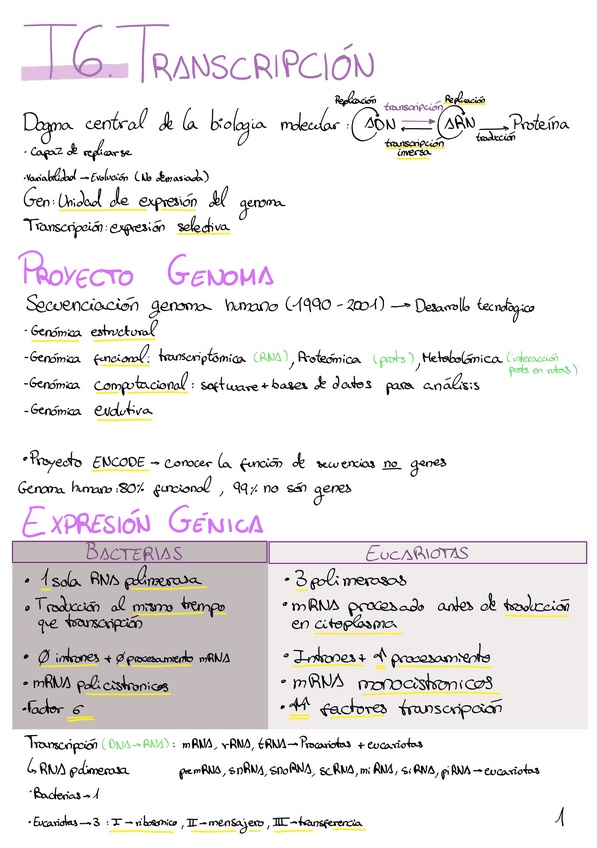 T6. TRANSCRIPCIÓN
Replicación transcripción Replicación
Dogma central de la biologia molecular: ADN ⇄ ARN → Proteína
transcripción inversa traducción
· Capaz de replicarse
· Variabilidad → Evolución (No demasiada)
Gen: Unidad de expresión del genoma
Transcripción: expresión selectiva
PROYECTO GENOMA
Secuenciación genoma humano (1990-2001) → Desarrollo tecnológico
- Genómica estructural
- Genómica funcional: transcriptómica (RNA), Proteómica (prots), Metabolómica (interacción prots en rutas)
- Genómica computacional: software + bases de datos para análisis
- Genómica evolutiva
· Proyecto ENCODE → conocer la función de secuencias no genes
Genoma humano: 80% funcional, 99% no són genes
EXPRESIÓN GÉNICA
BACTERIAS
· 1 sola RNA polimerasa
· Traducción al mismo tiempo
que transcripción
· Ø intrones + Ø procesamiento mRNA
· mRNA policistronicos
· Factor σ
EUCARIOTAS
· 3 polimerasas
· mRNA procesado antes de traducción
en citoplasma
· Intrones + ↑ procesamiento
· mRNA monocistronicos
· ↑↑ factores transcripción
Transcripción (DNA→RNA): mRNA, rRNA, tRNA → Procariotas + eucariotas
↳ RNA polimerasa premRNA, snRNA, snoRNA, scRNA, miRNA, siRNA, piRNA → eucariotas
· Bacterias → 1
· Eucariotas → 3: I → ribosomico, II → mensajero, III → transferencia
1